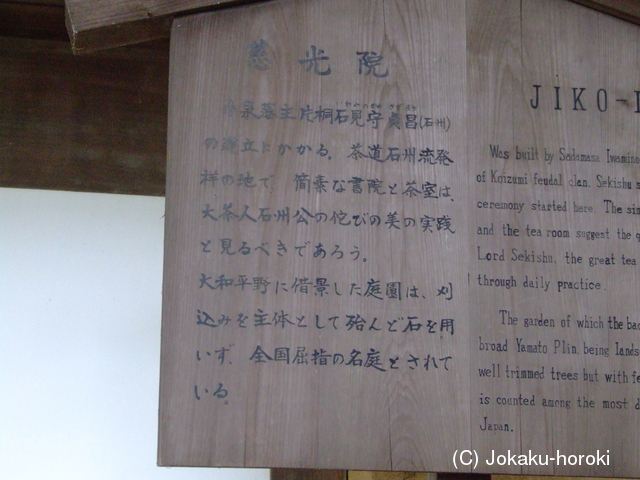 慈光院
小泉藩主片桐石見守貞昌(石州)
の建立にかかる。茶道石州流発
祥の地で 簡素な書院と茶室は、
大茶人石州公の侘びの美の実践
と見るべきであろう。
大和平野に借景した庭園は、刈
込みを主体として殆んど石を用
いず 全国屈指の名庭とされて
いる。
JIKO-
Was built by Sadamasa Iwamino
of Koizumi feudal clan. Sekishu
ceremony started here. The
and the tea room suggest the
Lord Sekishu, the great tea
through daily practice.
The garden of which the
broad Yamato Plin, being
well trimmed trees but with
is counted among the most
Japan.
(C) Jokaku-horoki